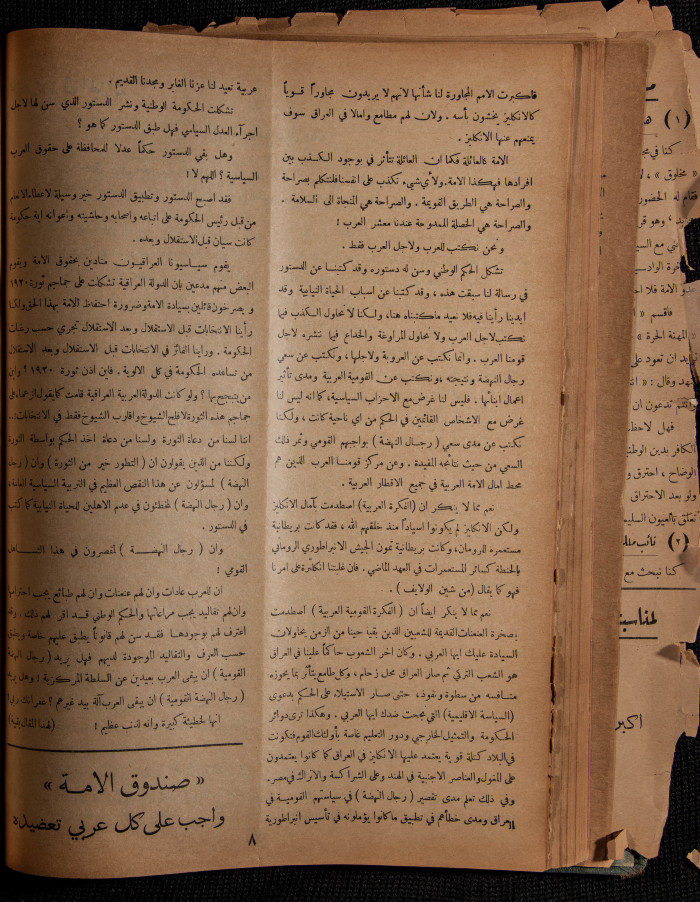 فاكبرت الامم المجاورة لنا شأنها لانهم لا يريدون مجاوراً قوياً
كالانكليز يخشون بأسه . ولان لهم مطامع وامالا في العراق سوف
يمنعهم عنها الانكليز .
الامة كالعائلة فكما ان العائلة تتأثر في بوجود الكذب بين
افرادها فهكذا الامة. ولأي شيء نكذب على انفسنا فلنتكلم بصراحة
والصراحة هي الطريق القويمة . والصراحة هي المنجاة الى السلامة .
والصراحة هي الحصلة الممدوحة عندنا معشر العرب !
ونحن نكتب للعرب ولاجل العرب فقط .
تشكل الحكم الوطني وسن له دستوره وقد كتبنا عن الدستور
في رسالة لنا سبقت هذه ، وقد كتبنا عن اسباب الحياة النيابية وقد
ابدينا رأينا فيه فلا نعيد ماكتبناه هنا، ولسكنا لا نحاول الكذب فيما
نكتب لاجل العرب ولا نحاول المراوغة والخداع فيما ننشره لاجل
قومنا العرب . وانما نكتب عن العروبة ولاجلها ، ونكتب عن سعي
رجال النهضة ونتيجته ،ونكتب عن القومية العربية ومدى تأثير
اعمال ابنائها . فليس لنا غرض مع الاحزاب السياسية، كما انه ليس لنا
غرض مع الاشخاص القائمين في الحكم من اي ناحية كانت ، ولكنا
نكتب عن مدى سعي ( رجال النهضة ) بواجبهم القومي وثمر ذلك
السعي من حيث نتائجه المفيدة . وعن مركز قومنا العرب الذين هم
محط امال الامة العربية في جميع الاقطار العربية .
نعم مما لا ينكر ان (الفكرة العربية) اصطدمت بآمال الانكليز
ولكن الانكليز لم يكونوا اسياداً منذ خلقهم الله ، فقد كانت بريطانية
مستعمره للرومان، وكانت بريطانية تمون الجيش الانبراطوري الروماني
بالحنطة كسائر المستعمرات في العهد الماضي. فان غلبتنا انكلترة على امرنا
فهو كما يقال (من شين الولايف ) .
نعم مما لا ينكر ايضاً ان ( الفكرة القومية العربية ) اصطدمت
بصخرة العنعنات القديمة للشعبين الذين بقيا حينا من الزمن يحاولان
السيادة عليك ايها العربي . وكان اخر الشعوب حاكماً علينا في العراق
هو الشعب التركي ثم سار العراق محل زحام ، وكل طامع يتأثر بما يحوزه
منافسه من سطوة ونفوذ، حتى سار الاستيلاء على الحكم بدعوى
(السياسة الاقليمية) التي نجحت ضدك ايها العربي . وهكذا ترى دوائر
الحكومة والتمثيل الخارجي ودور التعليم غاصة بأولئك القوم فتكونت
في البلاد كتلة قوية يعتمد عليها الانكليز في العراق كما كانوا يعتمدون
على المغول والعناصر الاجنبية في الهند وعلى الشراكسة والاتراك في مصر.
وفي ذلك تعلم مدى تقصير ( رجال النهضة ) في سياستهم القومية في
العراق ومدى خطأهم في تطبيق ما كانوا يؤملونه في تأسيس انبراطورية
عربية تعيد لنا عزنا الغابر ومجدنا القديم .
تشكلت الحكومة الوطنية ونشر الدستور الذي سن لها لاجل
اجرآء العدل السياسي فهل طبق الدستور كما هو ؟
وهل بقي الدستور حكماً عدلا للمحافظة على حقوق العرب
السياسية ؟ اللهم لا !
فقد اصبح الدستور وتطبيق الدستور خير وسيلة لاعطاء الانعام
من قبل رئيس الحكومة على اتباعه واصحابه وحاشيته واعوانه اية حكومة
كانت سيان قبل الاستقلال وبعده .
يقوم سياسيونا العراقيون منادين بحقوق الامة ويقوم
البعض منهم مدعين بان الدولة العراقية تشكلت على جماجم ثورة ١٩٢٠
ويصرخون قائلين بسيادة الامة وضرورة احتفاظ الامة بهذا الحق ولكنا
رأينا الانتخابات قبل الاستقلال وبعد الاستقلال تجري حسب رغبات
الحكومة . وراينا الفائز في الانتخابات قبل الاستقلال وبعد الاستقلال
من تساعده الحكومة في كل الالوية . فاين اذن ثورة ١٩٢٠ ؟ واين
من يتبجح بها ؟ ولو كانت الدولة العربية العراقية قامت كما يقول الزعماء على
جماجم هذه الثورة لافلح الشيوخ واقارب الشيوخ فقط في الانتخابات..
اننا لسنا من دعاة الثورة ولسنا من دعاة اخذ الحكم بواسطة الثورة
ولكننا من الذين يقولون ان ( التطور خير من الثورة ) وان ( رجال
النهضة ) لمسؤلون عن هذا النقص العظيم في التربية السياسية العامة،
وان ( رجال النهضة ) لمخطئون في عدم الاهلين للحياة النيابية كما كتب
في الدستور .
وان ( رجال النهضـة ) لمقصرون في هذا التساهل
القومي !
ان للعرب عادات وان لهم عنعنات وان لهم طبائع يجب احترامها
وان لهم تقاليد يجب مراعاتها والحكم الوطني قد اقر لهم ذلك . وقد
اعترف لهم بوجودها فقد سن لهم قانوناً يطبق عليهم خاصة ويتفق
حسب العرف والتقاليد الموجودة لديهم فهل يريد ( رجال النهضة
القومية ) ان يبقى العرب بعيدين عن السلطة المركزية ! وهل يريد
( رجال النهضة القومية ) ان يبقى العرب آلة بيد غيرهم ؟ غفرانك ربي !
انها لخطيئة كبيرة وانه لذنب عظيم ! (لهذا المقال بقية)
« صندوق الامـة »
واجب على كل عربي تعضيده
٨
( ١ )
« مخلوق » ،
فقام له الحضور
( ٢ ) نائب
كنا نبحث مع
لمناسبة
اكبر